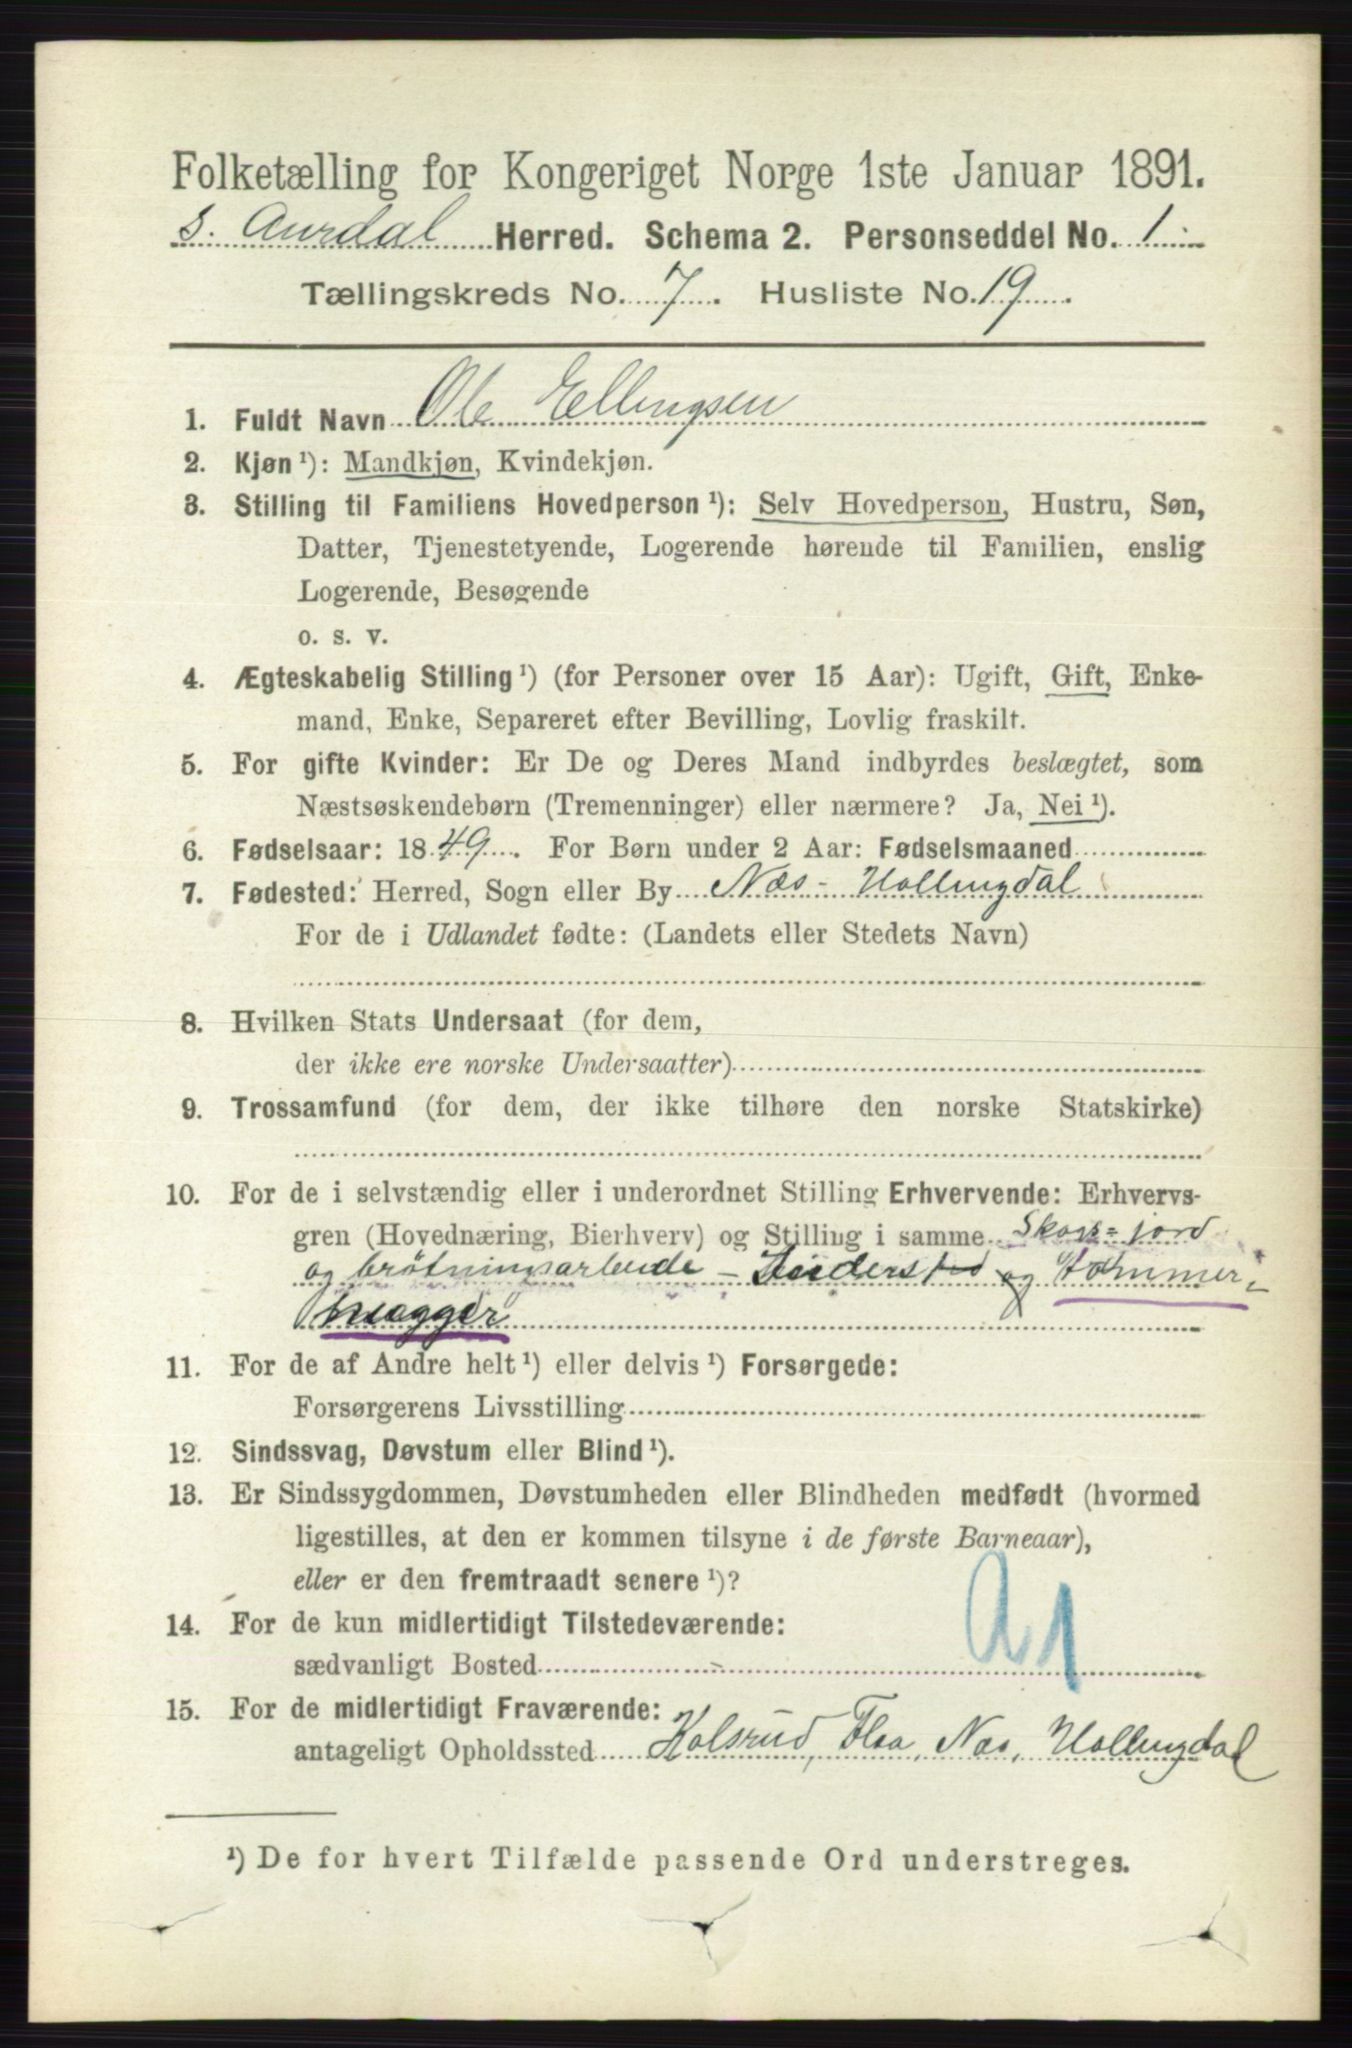 Folketælling for Kongeriget Norge 1ste Januar 1891.
S. Aurdal Herred. Schema 2. Personseddel No. 1.
Tællingskreds No. 7. Husliste No. 19.
1. Fuldt Navn Ole Ellingsen
2. Kjøn ¹): Mandkjøn, Kvindekjøn.
3. Stilling til Familiens Hovedperson ¹): Selv Hovedperson, Hustru, Søn,
Datter, Tjenestetyende, Logerende hørende til Familien, enslig
Logerende, Besøgende
o. s. v.
4. Ægteskabelig Stilling ¹) (for Personer over 15 Aar): Ugift, Gift, Enke-
mand, Enke, Separeret efter Bevilling, Lovlig fraskilt.
5. For gifte Kvinder: Er De og Deres Mand indbyrdes beslægtet, som
Næstsøskendebørn (Tremenninger) eller nærmere? Ja, Nei ¹).
6. Fødselsaar: 1849. For Børn under 2 Aar: Fødselsmaaned
7. Fødested: Herred, Sogn eller By Næs - Hallingdal
For de i Udlandet fødte: (Landets eller Stedets Navn)
8. Hvilken Stats Undersaat (for dem,
der ikke ere norske Undersaatter)
9. Trossamfund (for dem, der ikke tilhøre den norske Statskirke)
10. For de i selvstændig eller i underordnet Stilling Erhvervende: Erhvervs-
gren (Hovednæring, Bierhverv) og Stilling i samme Skov= jord
og brötningsarbeide - og tømmer-
hugger
11. For de af Andre helt ¹) eller delvis ¹) Forsørgede:
Forsørgerens Livsstilling
12. Sindssvag, Døvstum eller Blind ¹).
13. Er Sindssygdommen, Døvstumheden eller Blindheden medfødt (hvormed
ligestilles, at den er kommen tilsyne i de første Barneaar),
eller er den fremtraadt senere ¹)?
14. For de kun midlertidigt Tilstedeværende:
sædvanligt Bosted -
15. For de midlertidigt Fraværende:
antageligt Opholdssted Kolsrud, Flaa, Næs, Hallingdal
¹) De for hvert Tilfælde passende Ord understreges.